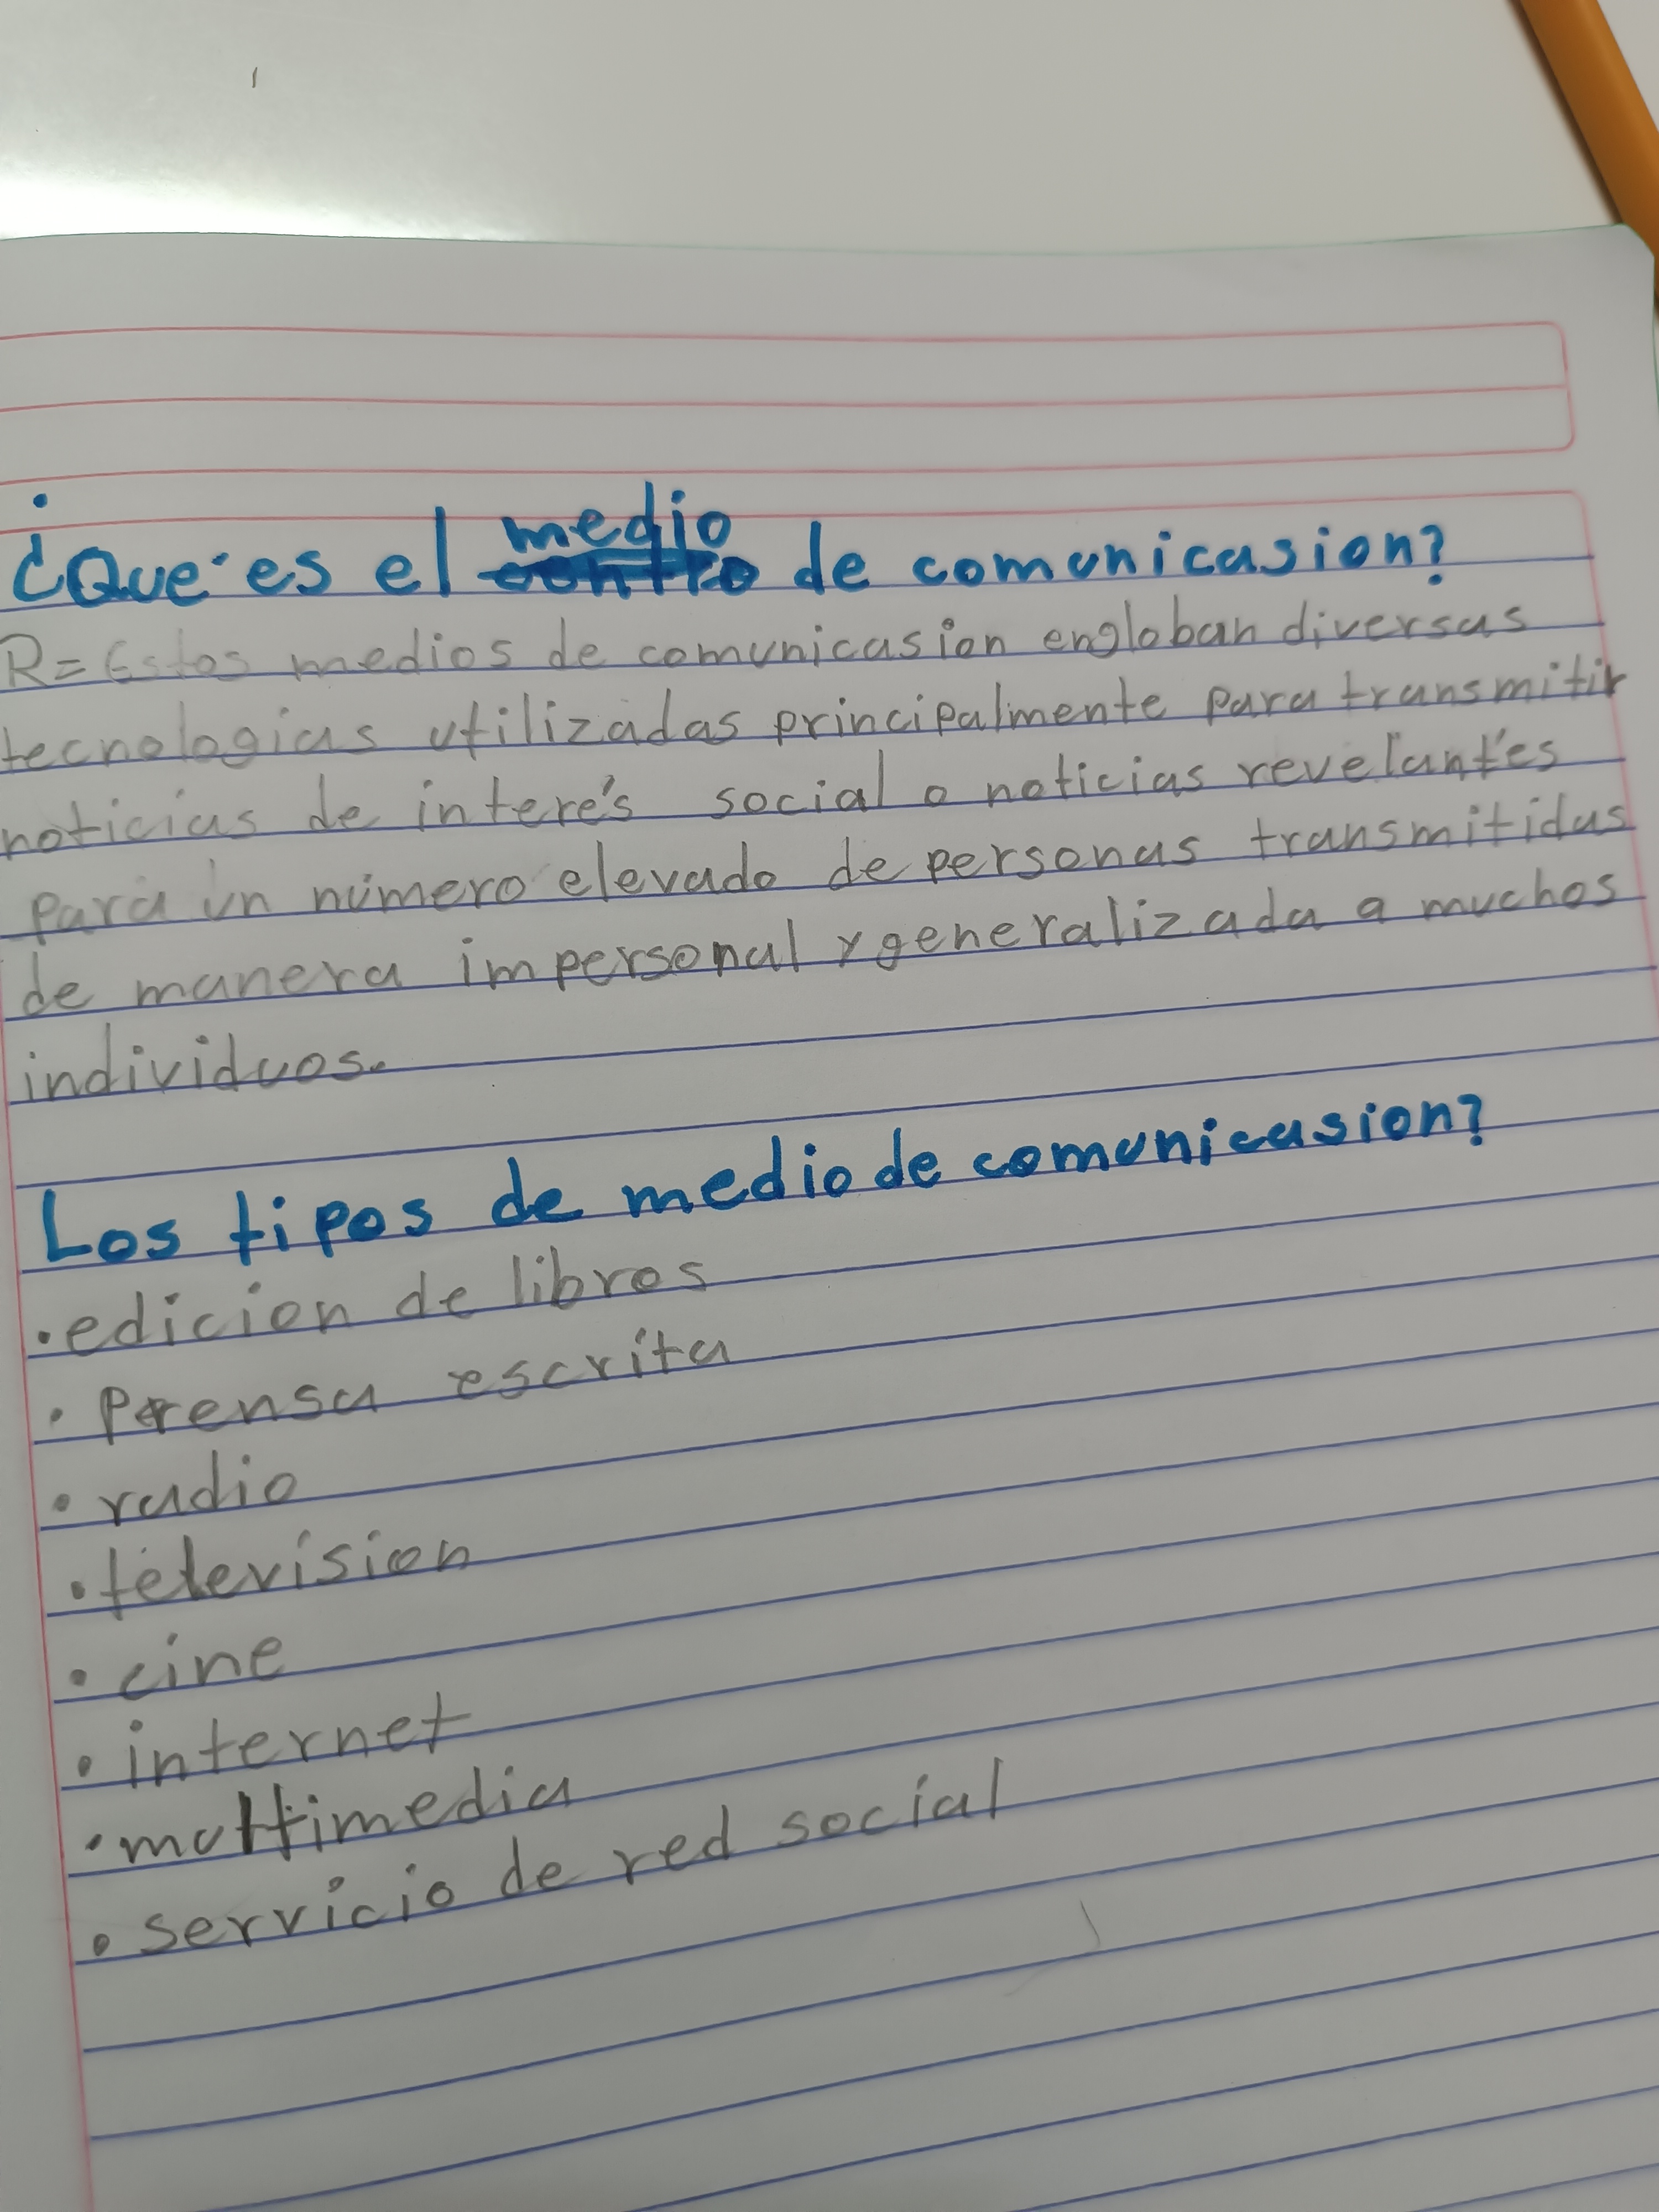 ¿Que es el medio de comunicasion?
R= Estos medios de comunicasion engloban diversas
tecnologias utilizadas principalmente para transmitir
noticias de interés social o noticias revelantes
para un número elevado de personas transmitidas
de manera impersonal y generalizada a muchos
individuos.
Los tipos de medio de comunicasion?
• edicion de libros
• Prensa escrita
• radio
• television
• cine
• internet
• multimedia
• servicio de red social